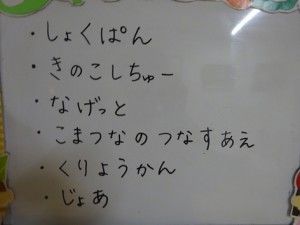 ・しょくぱん
・きのこしちゅー
・なげっと
・こまつなのつなすあえ
・くりようかん
・じょあ